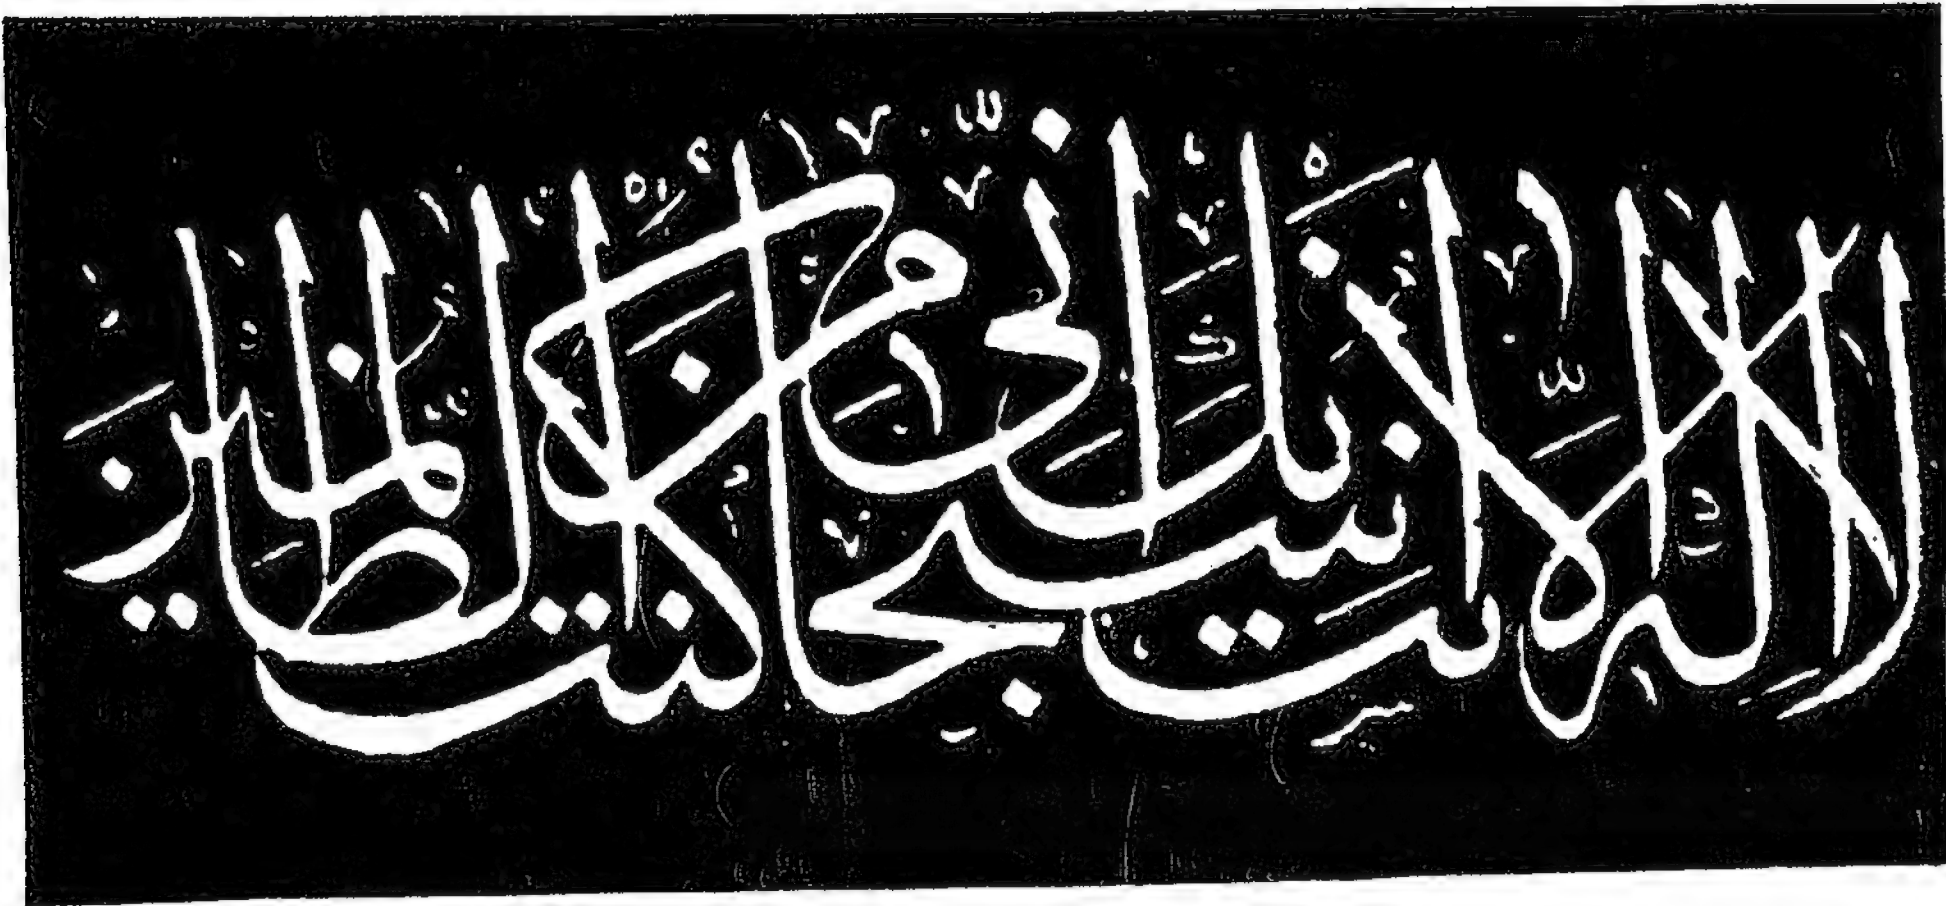 لا اله الا انت سبحانك انى كنت من الظالمين